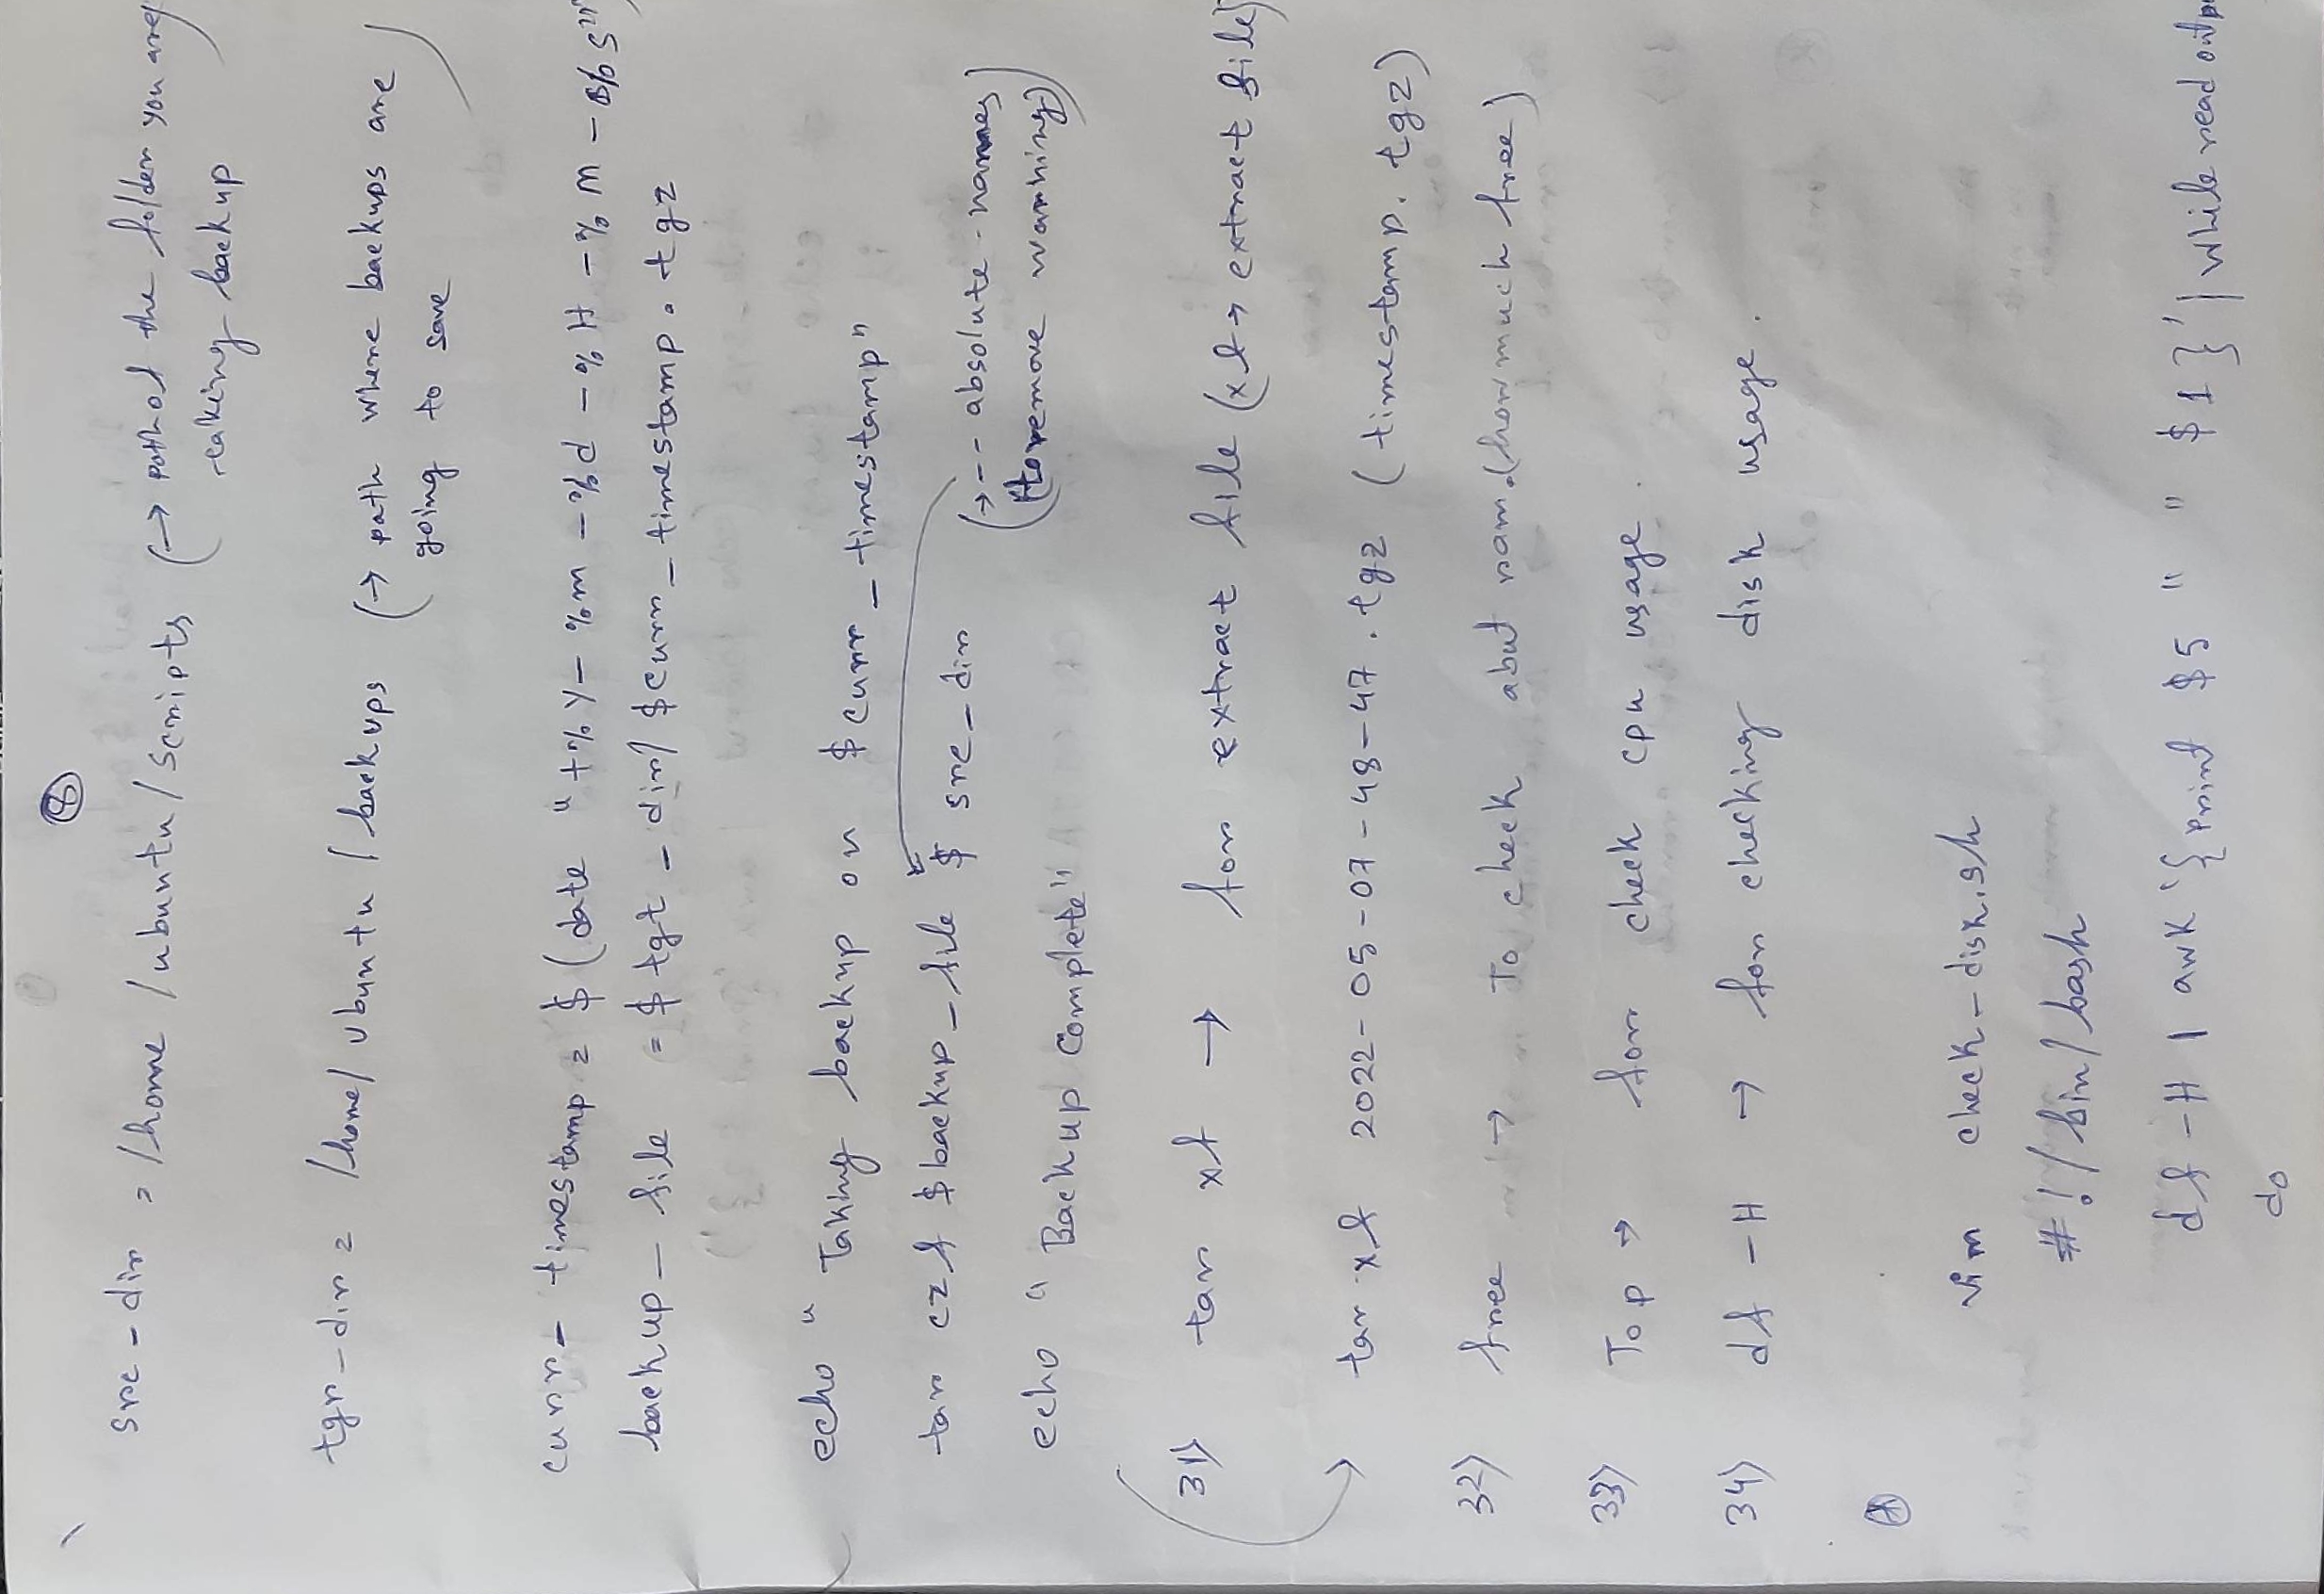 8
src_dir = /home/ubuntu/scripts (→ path of the folder you are
taking backup)
tgr_dir = /home/ubuntu/backups (→ path where backups are
going to save)
curr_timestamp = $(date "+%Y-%m-%d-%H-%M-%S")
backup_file = $tgt_dir/$curr_timestamp.tgz
echo "Taking backup on $curr_timestamp"
tar czf $backup_file $src_dir
(→ --absolute-names
(to remove warning))
echo "Backup Complete"
31) tar xf → for extract file (xf → extract file)
→ tar xf 2022-05-07-48-47.tgz (timestamp.tgz)
32) free → To check abut ram.(how much free)
33) Top → for check cpu usage.
34) df -H → for checking disk usage.
vim check_disk.sh
#!/bin/bash
df -H | awk '{print $5 " " $1}' | while read
do